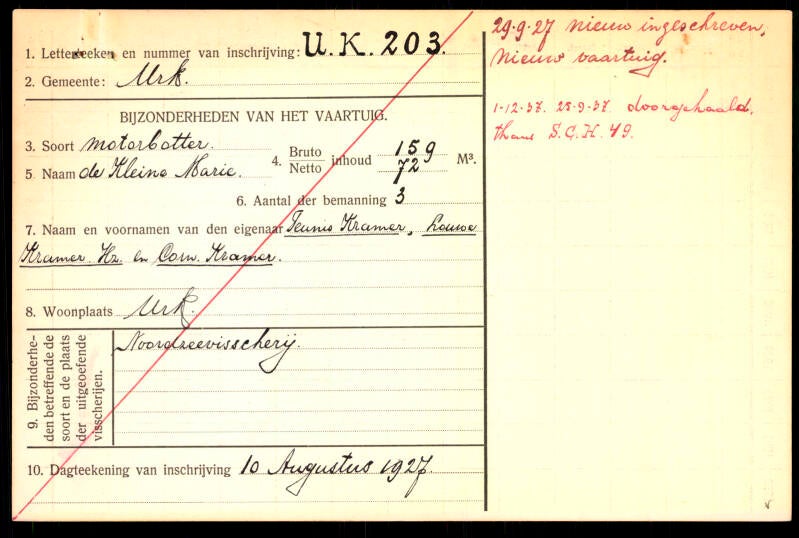 1. Letterteeken en nummer van inschrijving: U.K. 203.
2. Gemeente: Urk.
BIJZONDERHEDEN VAN HET VAARTUIG.
3. Soort motorbotter.
4. Bruto / Netto inhoud 159 / 72 M³.
5 Naam de Kleine Marie.
6. Aantal der bemanning 3
7. Naam en voornamen van den eigenaar Teunis Kramer, Louwe
Kramer Hz. en Corn. Kramer.
8. Woonplaats Urk.
9. Bijzonderhe-
den betreffende de
soort en de plaats
der uitgeoefende
visscherijen.
Noordzeevisscherij.
10. Dagteekening van inschrijving 10 Augustus 1927.
29-9-27 nieuw ingeschreven,
nieuw vaartuig.
1-12-37. 28-9-37. doorgehaald.
thans S.C.H. 49.